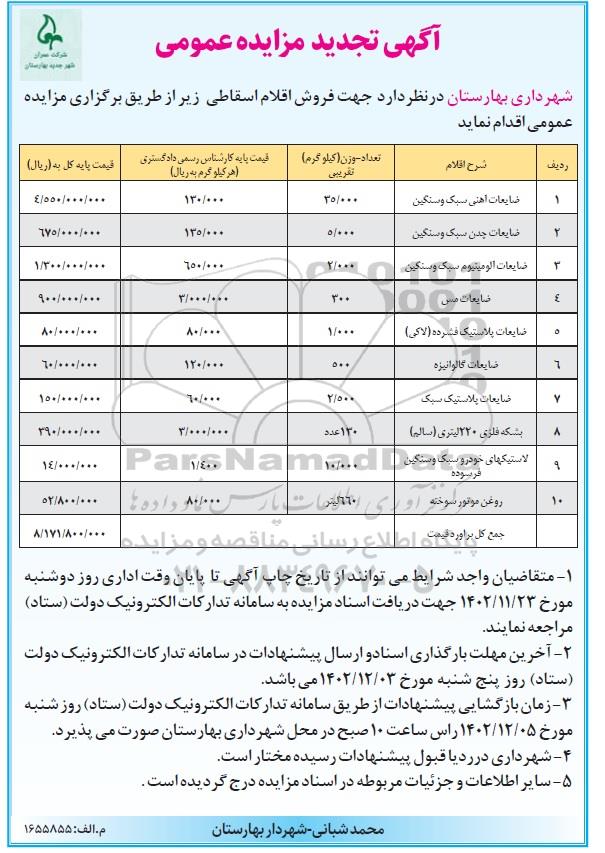 شرکت عمران
شهر جدید بهارستان
آگهی تجدید مزایده عمومی
شهرداری بهارستان درنظر دارد جهت فروش اقلام اسقاطی زیر از طریق برگزاری مزایده
عمومی اقدام نماید
ردیف شرح اقلام تعداد-وزن(کیلو گرم) تقریبی قیمت پایه کارشناس رسمی دادگستری (هرکیلو گرم به ریال) قیمت پایه کل به (ریال)
۱ ضایعات آهنی سبک وسنگین ۳۵/۰۰۰ ۱۳۰/۰۰۰ ۴/۵۵۰/۰۰۰/۰۰۰
۲ ضایعات چدن سبک وسنگین ۵/۰۰۰ ۱۳۵/۰۰۰ ۶۷۵/۰۰۰/۰۰۰
۳ ضایعات آلومینیوم سبک وسنگین ۲/۰۰۰ ۶۵۰/۰۰۰ ۱/۳۰۰/۰۰۰/۰۰۰
۴ ضایعات مس ۳۰۰ ۳/۰۰۰/۰۰۰ ۹۰۰/۰۰۰/۰۰۰
۵ ضایعات پلاستیک فشرده (لاکی) ۱/۰۰۰ ۸۰/۰۰۰ ۸۰/۰۰۰/۰۰۰
۶ ضایعات گالوانیزه ۵۰۰ ۱۲۰/۰۰۰ ۶۰/۰۰۰/۰۰۰
۷ ضایعات پلاستیک سبک ۲/۵۰۰ ۶۰/۰۰۰ ۱۵۰/۰۰۰/۰۰۰
۸ بشکه فلزی ۲۲۰لیتری (سالم) ۱۳۰عدد ۳/۰۰۰/۰۰۰ ۳۹۰/۰۰۰/۰۰۰
۹ لاستیکهای خودرو سبک وسنگین فرسوده ۱۰/۰۰۰ ۱/۴۰۰ ۱۴/۰۰۰/۰۰۰
۱۰ روغن موتور سوخته ۶۶۰لیتر ۸۰/۰۰۰ ۵۲/۸۰۰/۰۰۰
جمع کل براورد قیمت ۸/۱۷۱/۸۰۰/۰۰۰
ParsNamadData
پایگاه اطلاع رسانی مناقصه و مزایده
۰۲۱-۸۸۳۴۹۶۷۰-۵
۱- متقاضیان واجد شرایط می توانند از تاریخ چاپ آگهی تا پایان وقت اداری روز دوشنبه
مورخ ۱۴۰۲/۱۱/۲۳ جهت دریافت اسناد مزایده به سامانه تدارکات الکترونیک دولت (ستاد)
مراجعه نمایند.
۲- آخرین مهلت بارگذاری اسنادو ارسال پیشنهادات در سامانه تدارکات الکترونیک دولت
(ستاد) روز پنج شنبه مورخ ۱۴۰۲/۱۲/۰۳ می باشد.
۳- زمان بازگشایی پیشنهادات از طریق سامانه تدارکات الکترونیک دولت (ستاد) روز شنبه
مورخ ۱۴۰۲/۱۲/۰۵ راس ساعت ۱۰ صبح در محل شهرداری بهارستان صورت می پذیرد.
۴- شهرداری در رد یا قبول پیشنهادات رسیده مختار است.
۵- سایر اطلاعات و جزئیات مربوطه در اسناد مزایده درج گردیده است.
محمد شبانی-شهردار بهارستان
م.الف:۱۶۵۵۸۵۵